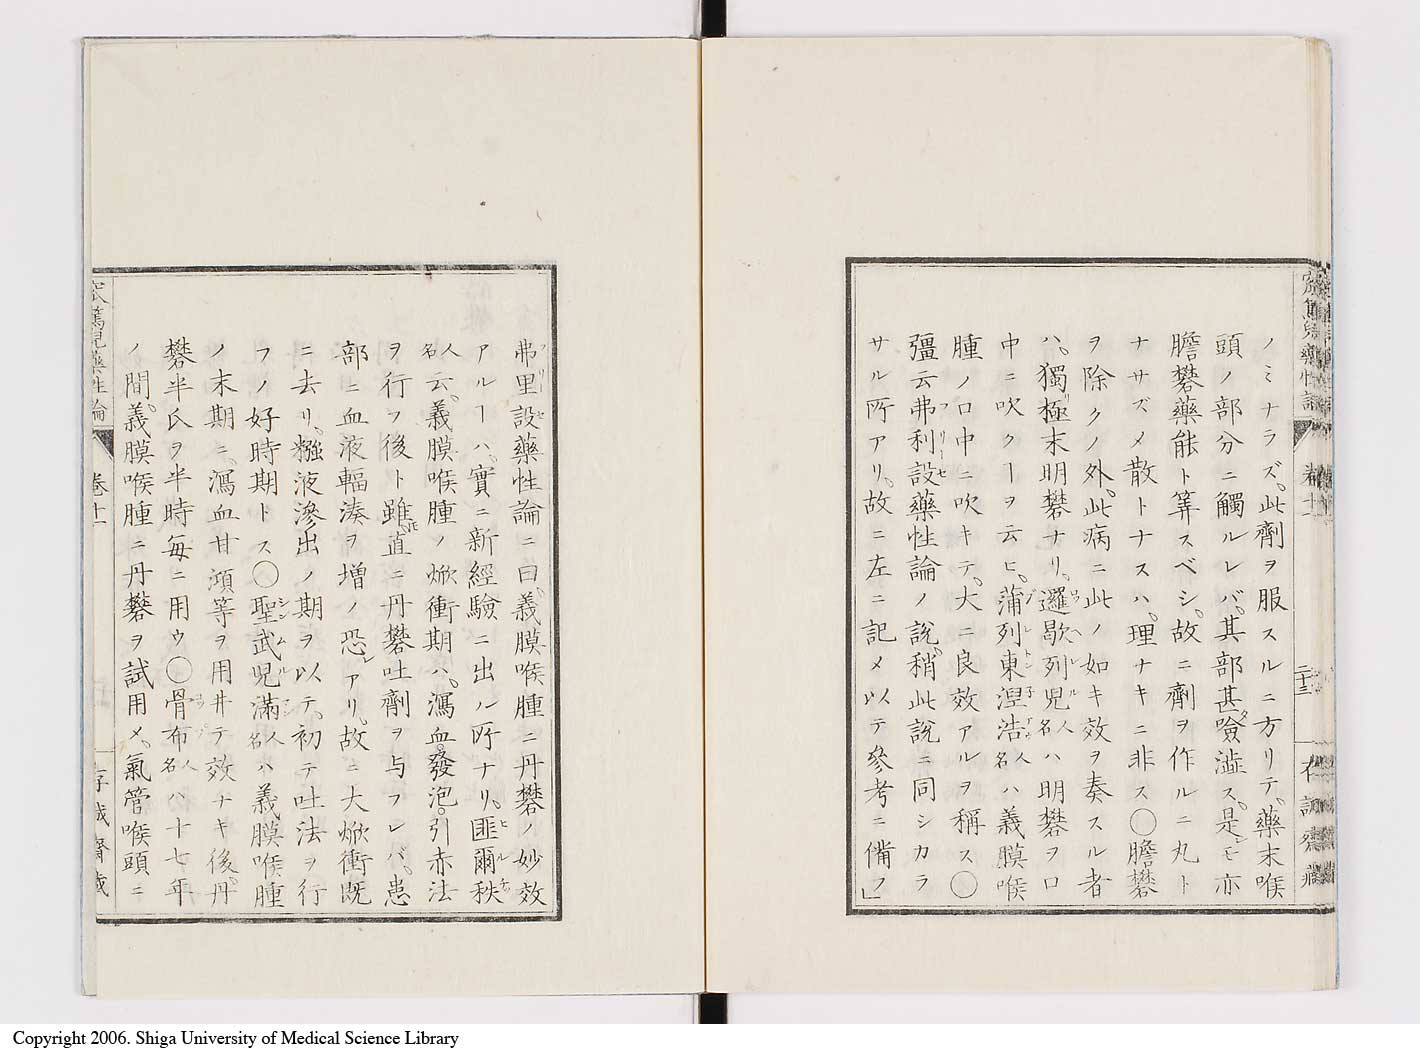 ノミナラズ。此劑ヲ服スルニ方リテ。藥末喉
頭ノ部分ニ觸ルレバ。其部甚タ噞澁ス。是レモ亦
膽礬藥能ト等スベシ。故ニ劑ヲ作ルニ丸ト
ナサズメ散トナスハ。理ナキニ非ス〇膽礬
ヲ除クノ外。此病ニ此ノ如キ效ヲ奏スル者
ハ。獨リ極末明礬ナリ。邏歇列兒人名ハ明礬ヲ口
中ニ吹クヿヲ云ヒ。蒲列東涅浩人名ハ義膜喉
腫ノ口中ニ吹キテ。大ニ良效アルヲ稱ス〇
彊云弗利設藥性論ノ說。稍此說ニ同シカラ
サル所アリ。故ニ左ニ記メ以テ參考ニ備フ」
弗里設藥性論ニ曰。義膜喉腫ニ丹礬ノ妙效
アルヿハ。實ニ新經驗ニ出ル所ナリ。匪爾秩
人名云。義膜喉腫ノ焮衝期ハ。瀉血。發泡。引赤法
ヲ行フ後ト雖𪜈。直ニ丹礬吐劑ヲ与フレバ。患
部ニ血液輻湊ヲ増ノ恐レアリ。故ニ大焮衝既
ニ去リ。糨液滲出ノ期ヲ以テ。初テ吐法ヲ行
フノ好時期トス〇聖武児滿人名ハ義膜喉腫
ノ末期ニ。瀉血甘澒等ヲ用井テ效ナキ後。丹
礬半氏ヲ半時毎ニ用ウ〇骨布人名ハ十七年
ノ間。義膜喉腫ニ丹礬ヲ試用メ。氣管喉頭ニ
窊篤兒藥性論
卷十一
二十三
存誠齋藏